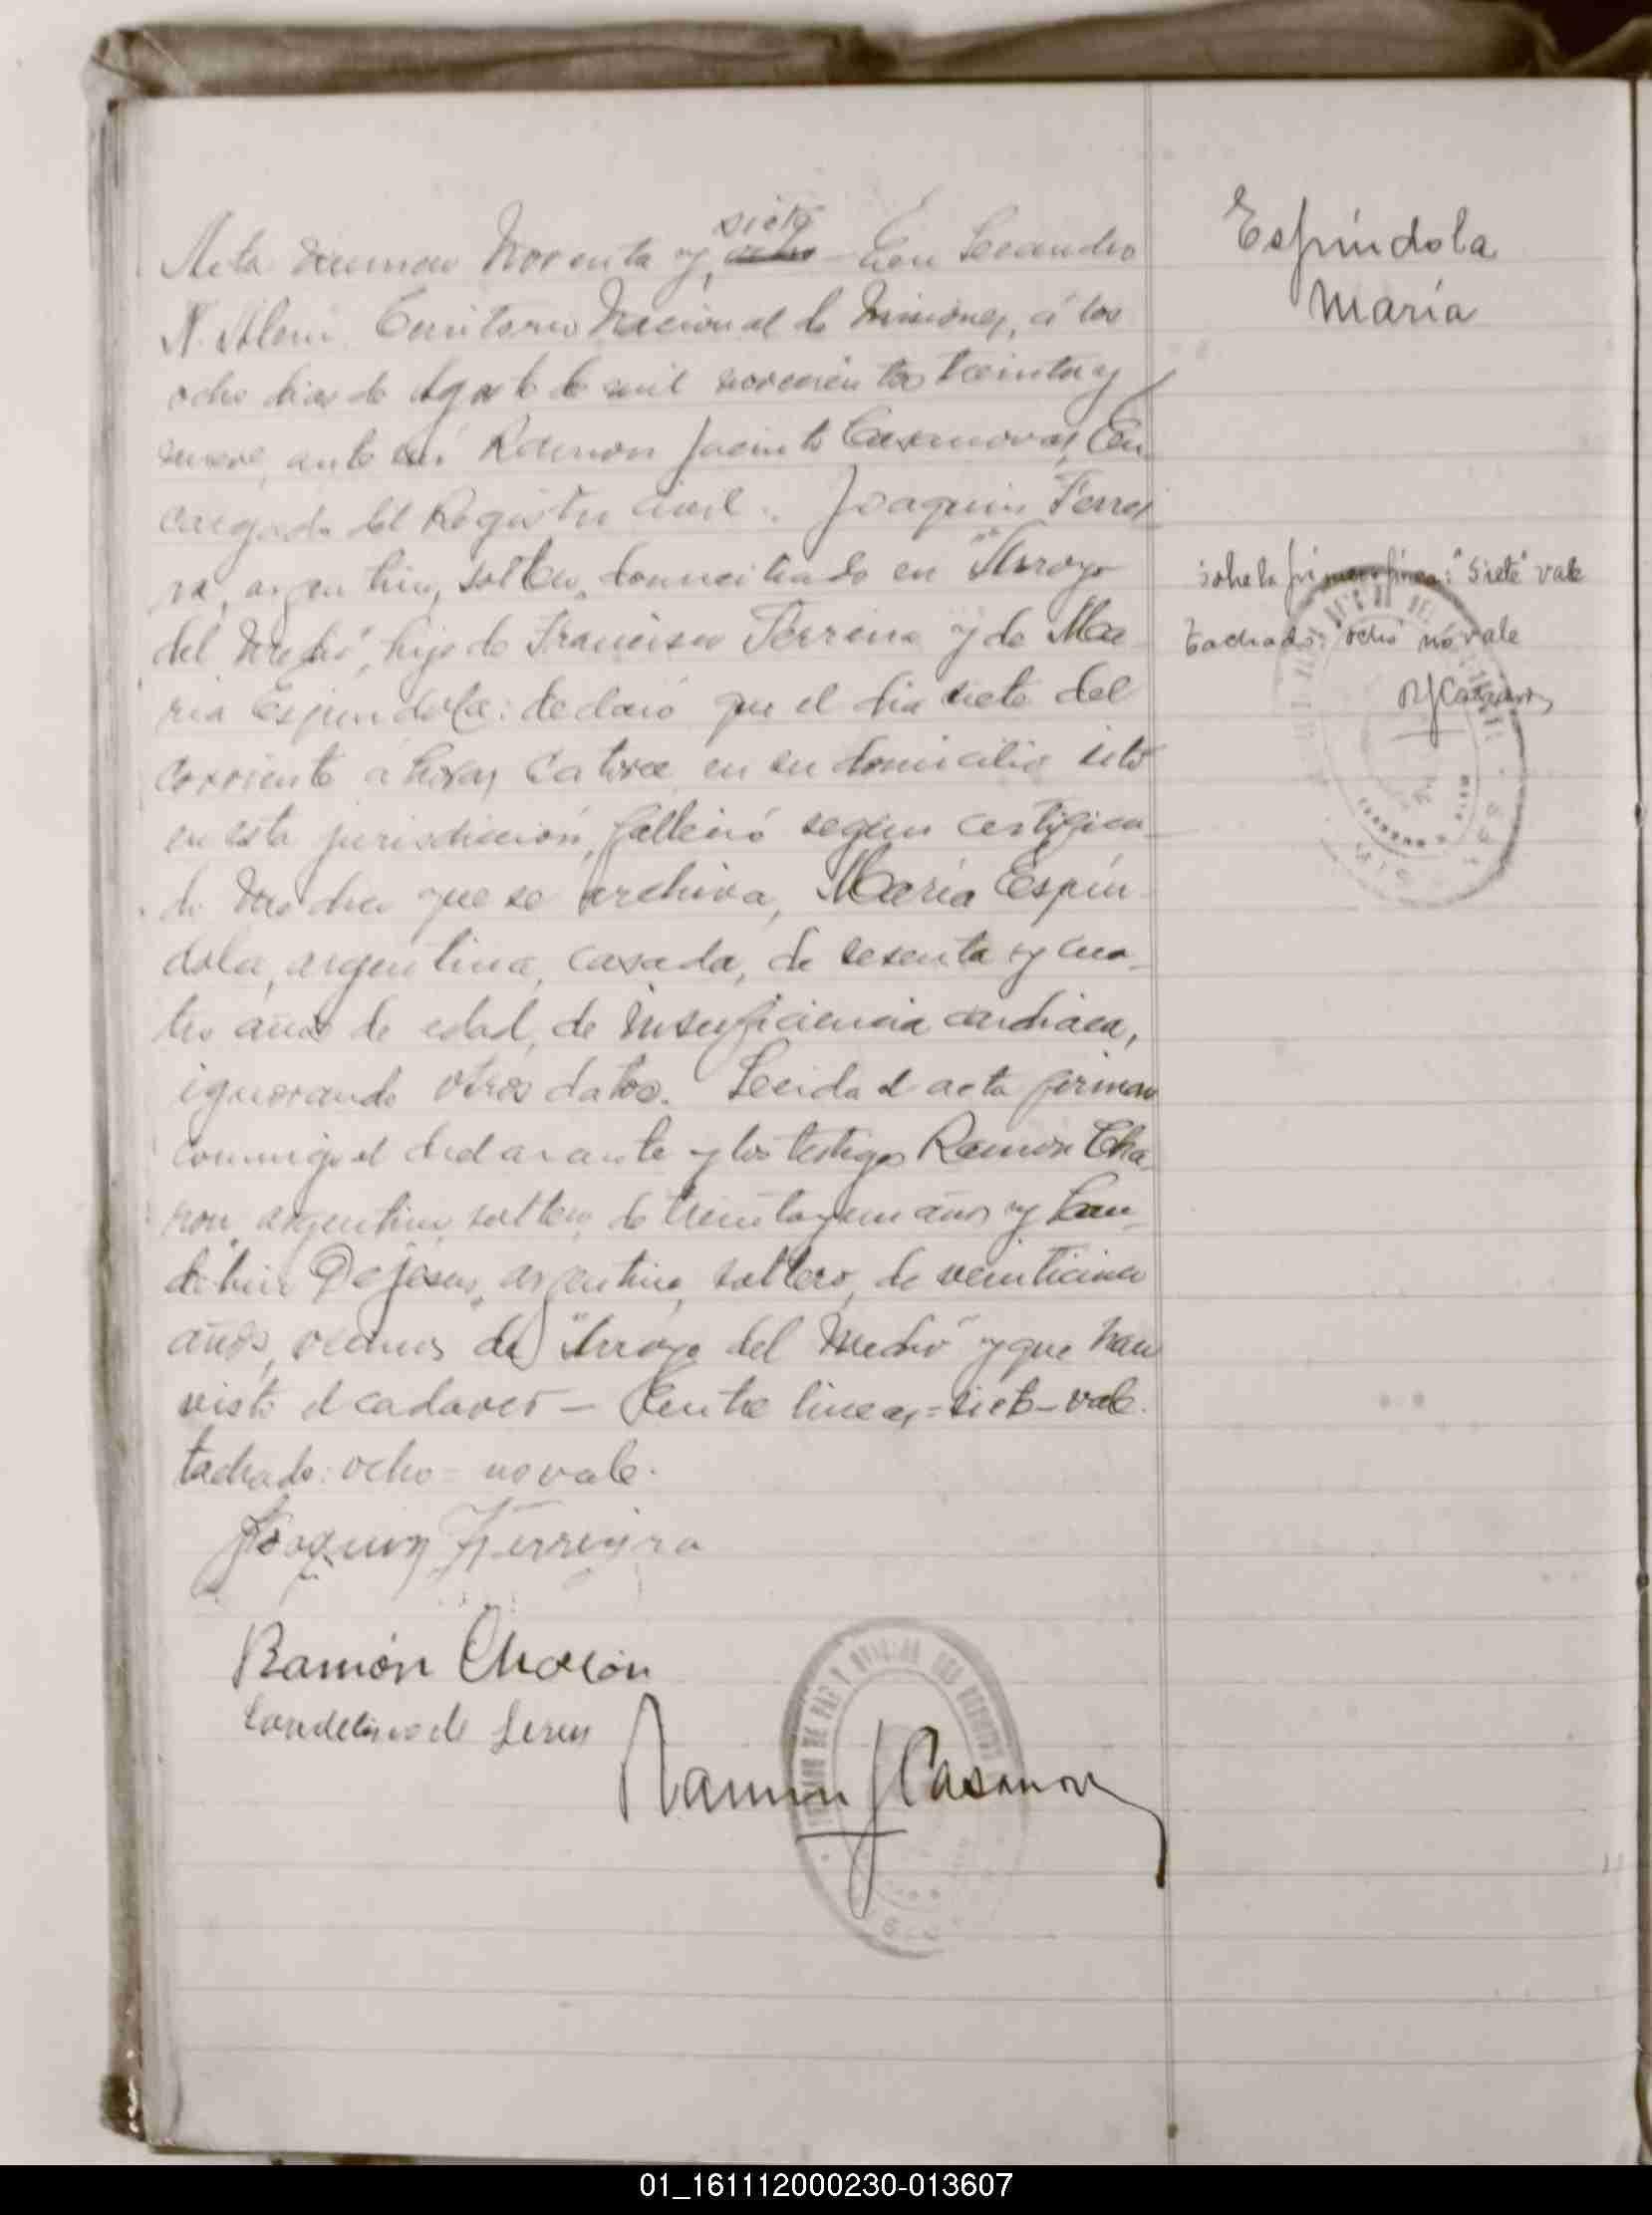 siete
Acta número Noventa y ocho En Leandro
N. Alem Territorio Nacional de Misiones, á los
ocho dias de Agosto de mil novecientos treinta y
nueve, ante mí Ramon Jacinto Casanovas, En
cargado del Registro Civil. Joaquin Ferrei
ra, argentino, soltero, domiciliado en "Arroyo
del Medio", hijo de Francisco Ferreira y de Ma
ria Espindola: declaró que el dia siete del
corriente á horas catorce en su domicilio sito
en esta jurisdicción, falleció según certifica
do que se archiva, Maria Espín
dola, argentina, casada, de sesenta y cua
tro años de edad, de insuficiencia cardiaca,
ignorando otros datos. Leida el acta firman
conmigo el declarante y los testigos Ramón Cha
argentino, soltero, de treinta y un años y Can
delino De Jesus, argentino, soltero, de veinticinco
años, vecinos de "Arroyo del Medio" y que han
visto el cadaver — Entre lineas = siete – vale.
tachado: ocho = no vale.
Joaquin Ferreyra
Ramón
Candelino de Jesus
Ramon J Casanovas
Espíndola
María
sobre la primera línea: "siete" vale
tachado: "ocho" no vale
RJCasanovas
01_161112000230-013607